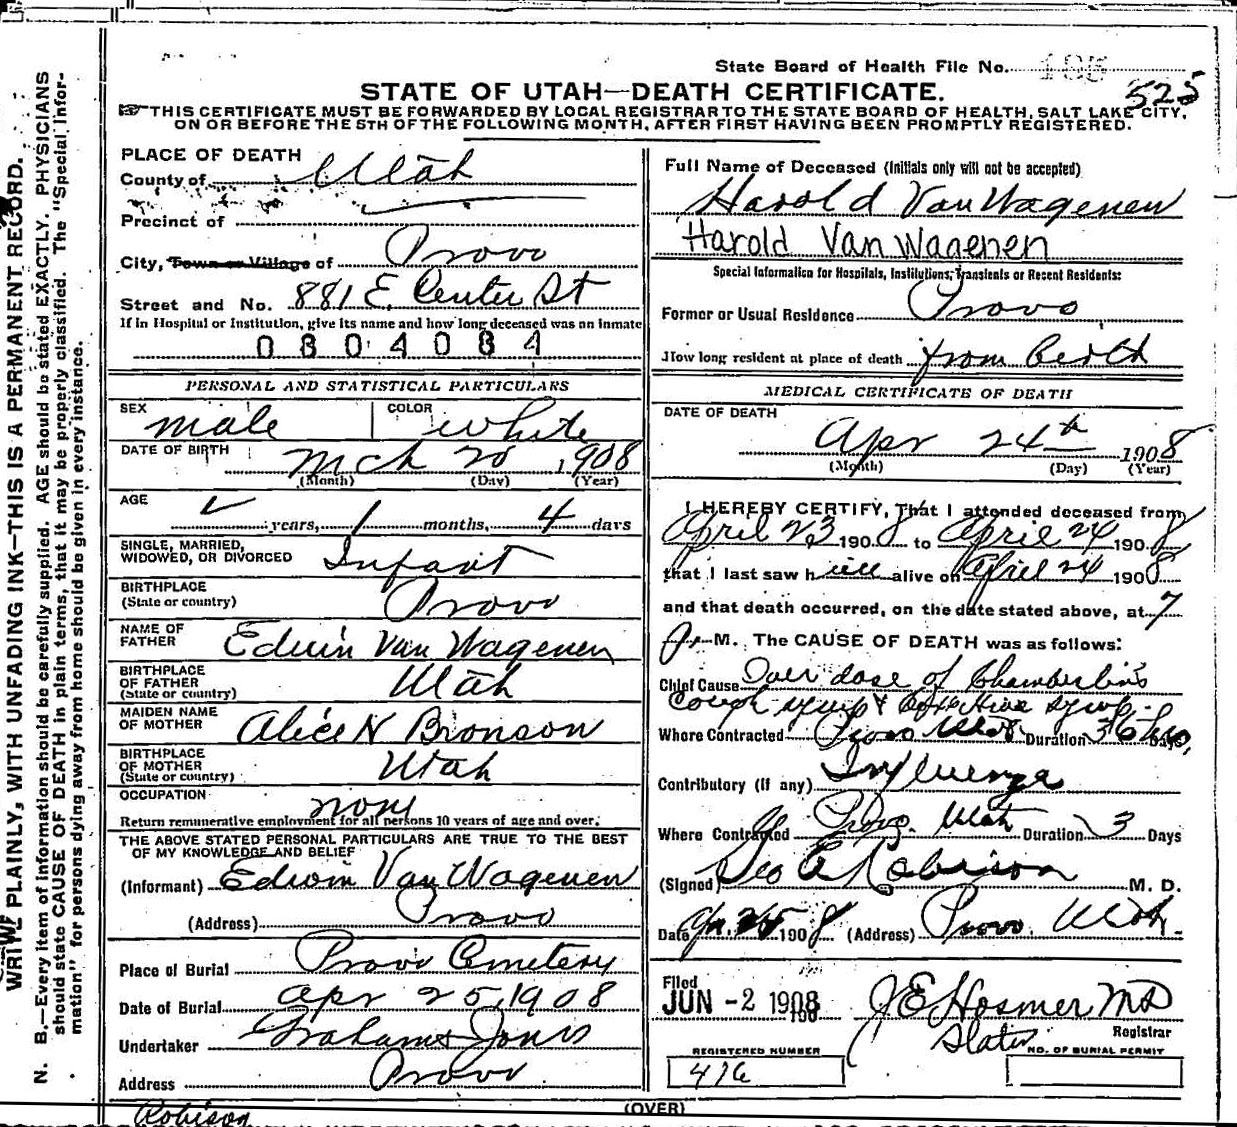 State Board of Health File No. 185
525
STATE OF UTAH—DEATH CERTIFICATE.
THIS CERTIFICATE MUST BE FORWARDED BY LOCAL REGISTRAR TO THE STATE BOARD OF HEALTH, SALT LAKE CITY,
ON OR BEFORE THE 5TH OF THE FOLLOWING MONTH, AFTER FIRST HAVING BEEN PROMPTLY REGISTERED.
WRITE PLAINLY, WITH UNFADING INK—THIS IS A PERMANENT RECORD.
N. B.—Every item of information should be carefully supplied. AGE should be stated EXACTLY. PHYSICIANS
should state CAUSE OF DEATH in plain terms, that it may be properly classified. The "Special Infor-
mation" for persons dying away from home should be given in every instance.
PLACE OF DEATH
County of Utah
Precinct of
City, Town or Village of Provo
Street and No. 881 E. Center St
If in Hospital or Institution, give its name and how long deceased was an inmate
0804084
PERSONAL AND STATISTICAL PARTICULARS
SEX male COLOR white
DATE OF BIRTH Mch 20, 1908
(Month) (Day) (Year)
AGE
years, 1 months, 4 days
SINGLE, MARRIED,
WIDOWED, OR DIVORCED Infant
BIRTHPLACE
(State or country) Provo
NAME OF
FATHER Edwin Van Wagenen
BIRTHPLACE
OF FATHER
(State or country) Utah
MAIDEN NAME
OF MOTHER Alice N Bronson
BIRTHPLACE
OF MOTHER
(State or country) Utah
OCCUPATION none
Return remunerative employment for all persons 10 years of age and over.
THE ABOVE STATED PERSONAL PARTICULARS ARE TRUE TO THE BEST
OF MY KNOWLEDGE AND BELIEF
(Informant) Edwin Van Wagenen
(Address) Provo
Place of Burial Provo Cemetery
Date of Burial Apr 25, 1908
Undertaker Graham & Jones
Address Provo
Robison
Full Name of Deceased (Initials only will not be accepted)
Harold Van Wagenen
Harold Van Wagenen
Special Information for Hospitals, Institutions, Transients or Recent Residents:
Former or Usual Residence Provo
How long resident at place of death from birth
MEDICAL CERTIFICATE OF DEATH
DATE OF DEATH
Apr 24th 1908
(Month) (Day) (Year)
I HEREBY CERTIFY, That I attended deceased from
April 23 1908 to April 24 1908
that I last saw h im alive on April 24 1908
and that death occurred, on the date stated above, at 7
P. M. The CAUSE OF DEATH was as follows:
Chief Cause Over dose of Chamberlin's
Cough syrup & syrup.
Where Contracted Provo Utah Duration 36 hrs, Days
Contributory (if any) Influenza
Where Contracted Provo. Utah Duration 3 Days
(Signed) Geo E Robison M. D.
Date Ap. 25 1908 (Address) Provo Utah.
Filed
JUN -2 1908
J E Hosmer MD
Registrar
REGISTERED NUMBER
416
NO. OF BURIAL PERMIT
(OVER)